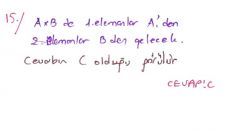 15-) AxB de 1. elemanlar A'dan
2. Elemanlar B den gelecek.
Cevabın C olduğu görülür
CEVAP: C